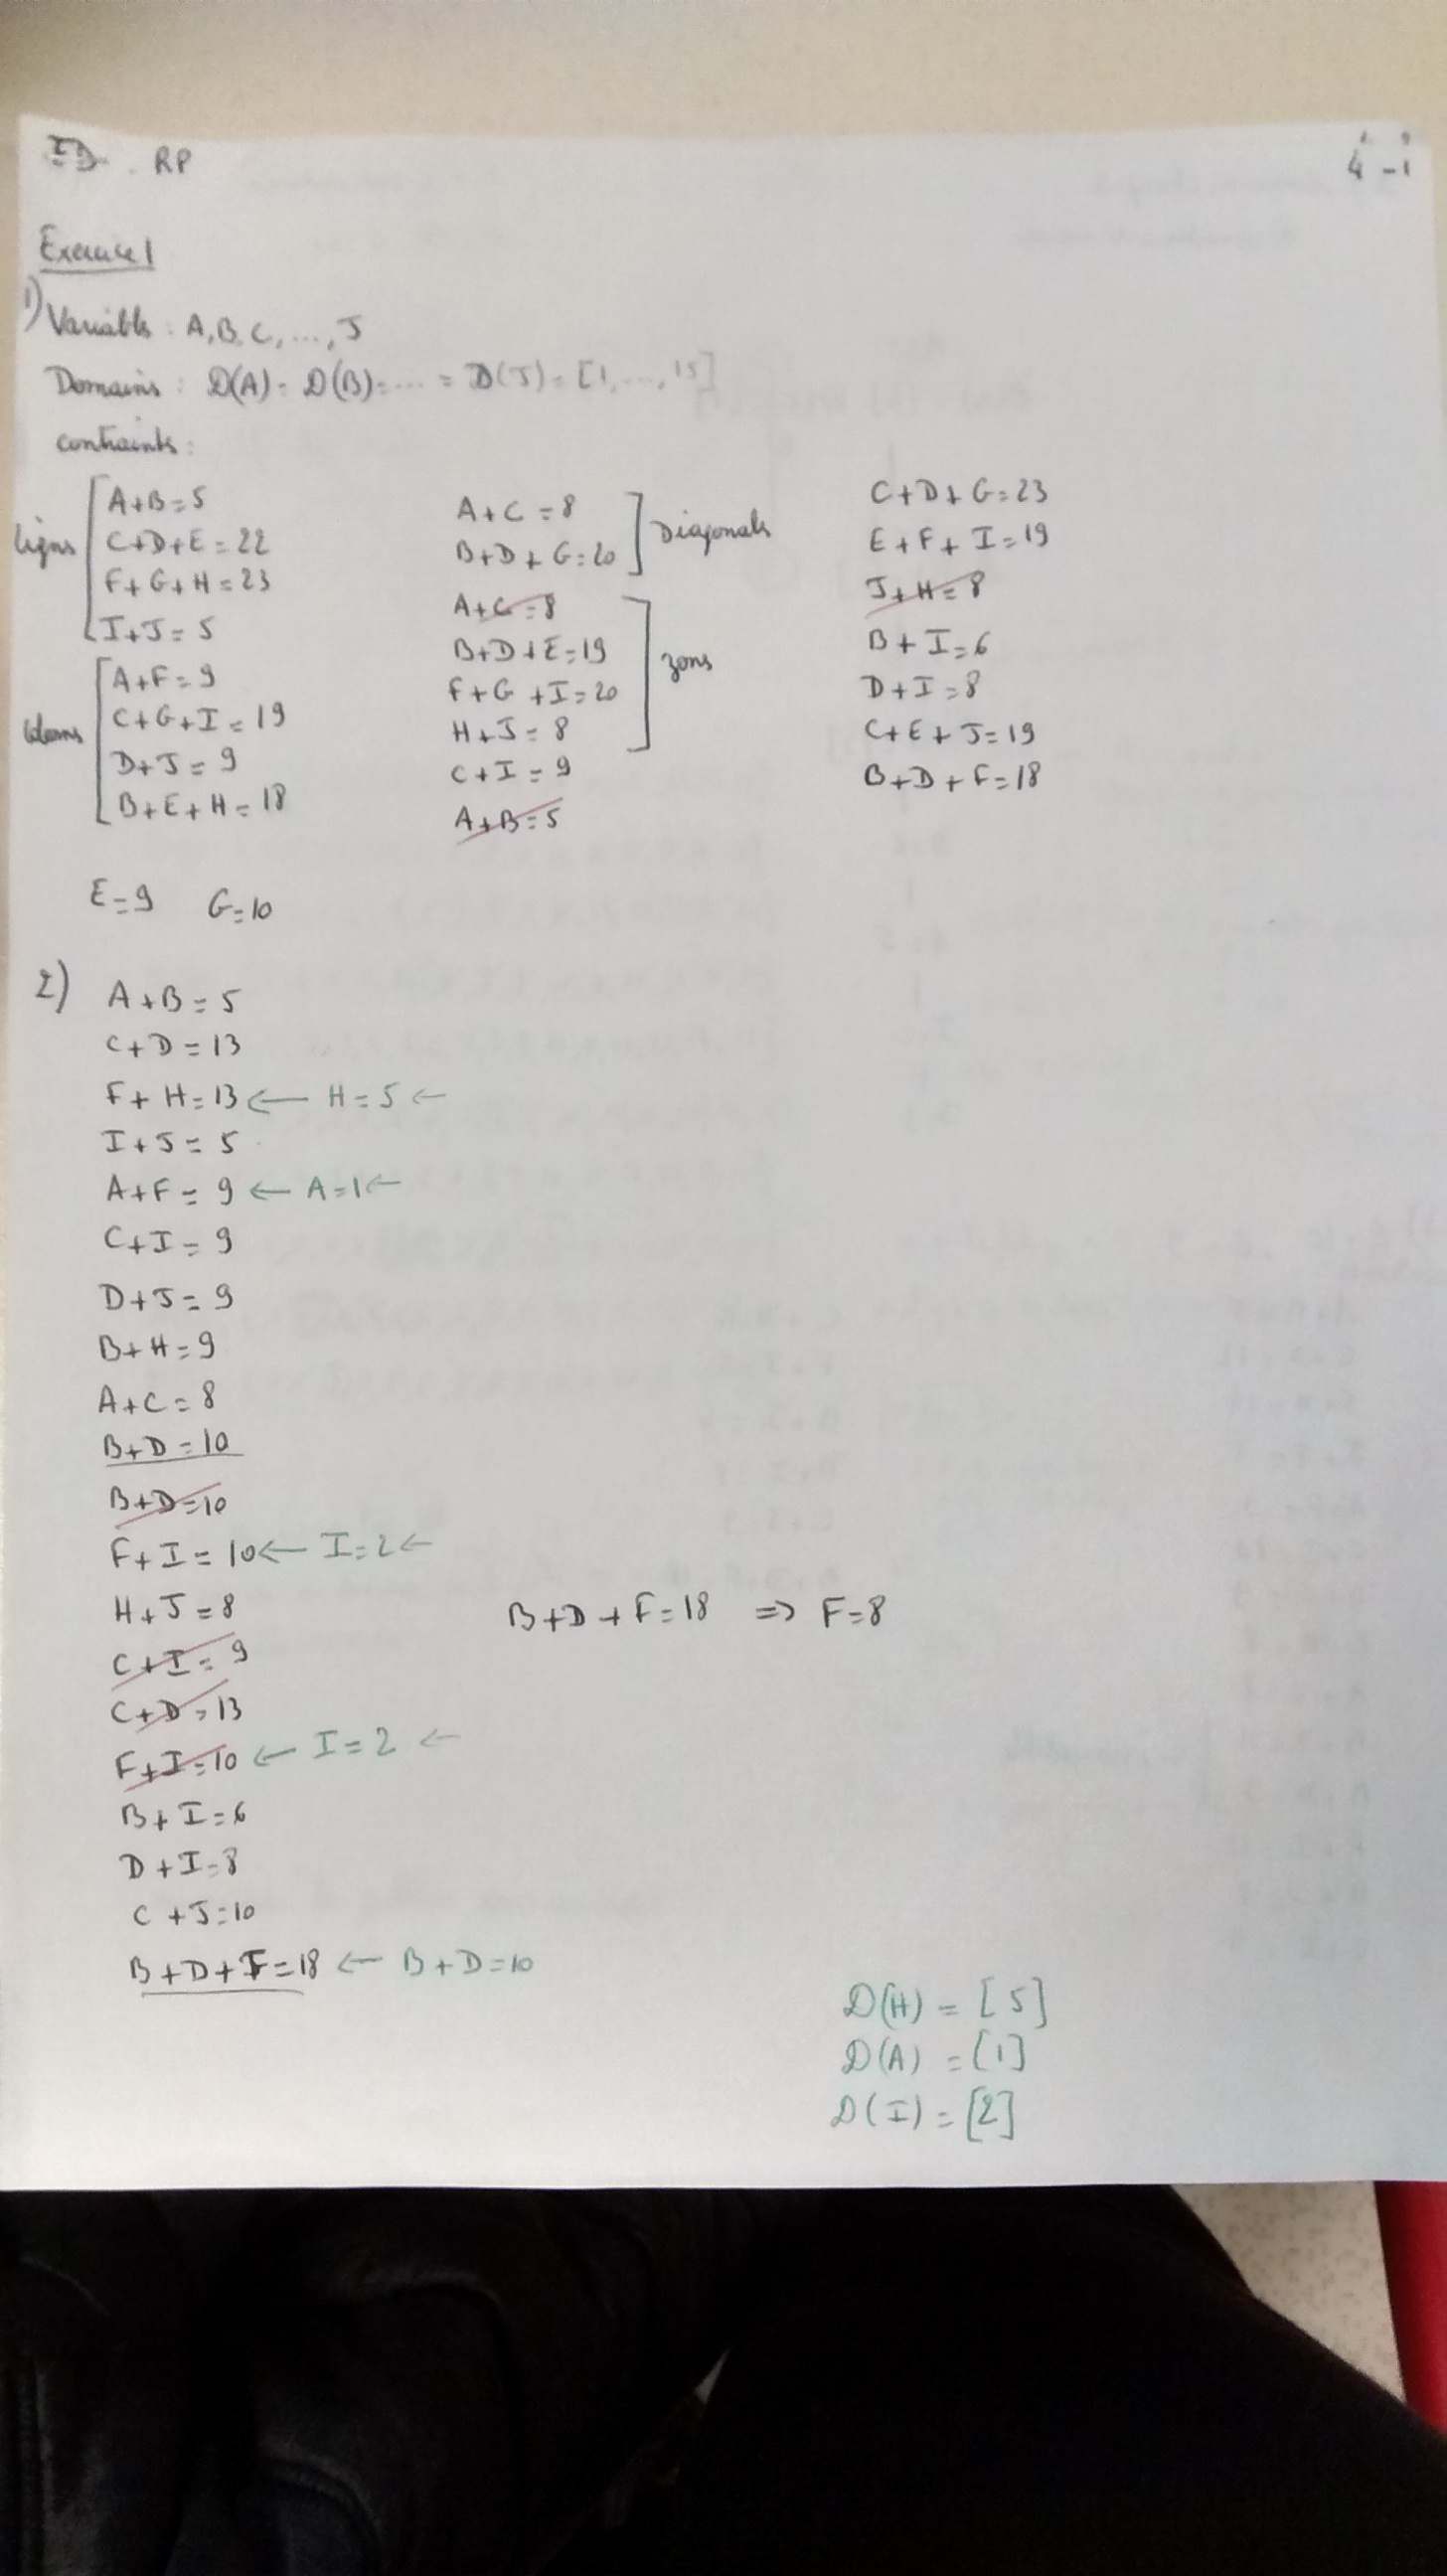 RP
4-1
Exercice 1
1) Variabls : A, B, C, ..., J
Domains : D(A) = D(B) = ... = D(J) = [1, ..., 15]
contraints :
ligns
A+B=5
C+D+E=22
F+G+H=23
I+J=5
A+F=9
C+G+I=19
D+J=9
B+E+H=18
A+C=8
B+D+G=20
Diagonals
A+C=8
B+D+E=19
F+G+I=20
H+J=8
zons
C+I=9
A+B=5
C+D+G=23
E+F+I=19
J+H=8
B+I=6
D+I=8
C+E+J=19
B+D+F=18
E=9 G=10
2) A+B=5
C+D=13
F+H=13 ← H=5 ←
I+J=5
A+F=9 ← A=1 ←
C+I=9
D+J=9
B+H=9
A+C=8
B+D=10
B+D=10
F+I=10 ← I=2 ←
H+J=8
B+D+F=18 => F=8
C+I=9
C+D=13
F+I=10 ← I=2 ←
B+I=6
D+I=8
C+J=10
B+D+F=18 ← B+D=10
D(H) = [5]
D(A) = [1]
D(I) = [2]